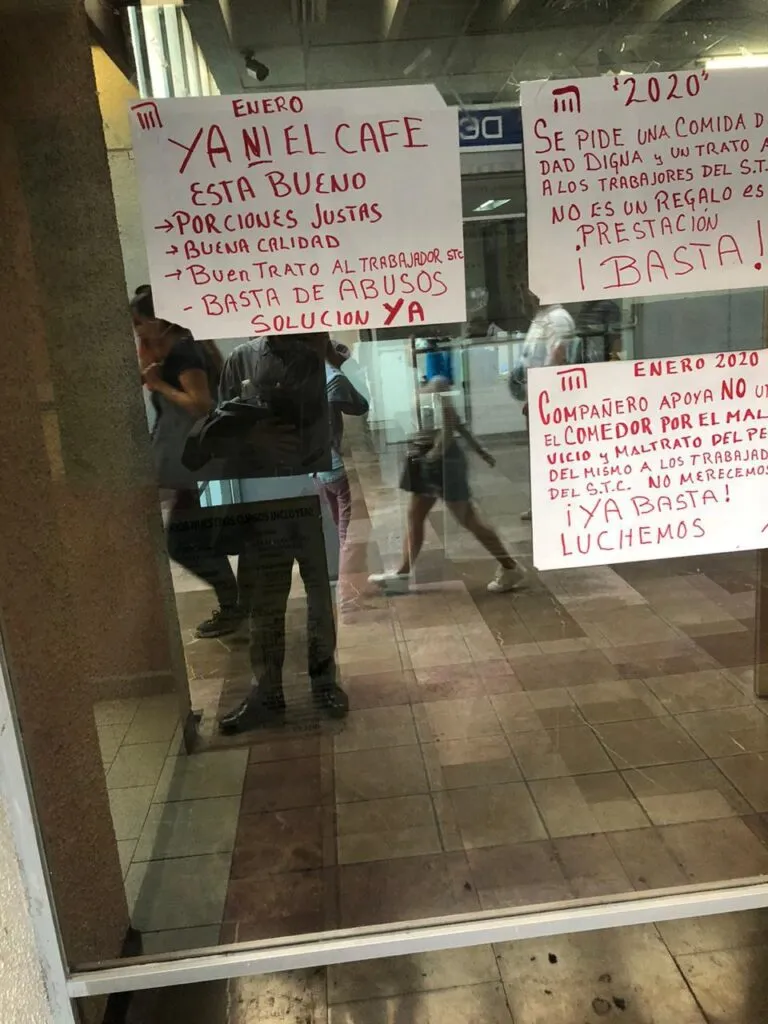 ENERO
YA NI EL CAFE
ESTA BUENO
→PORCIONES JUSTAS
→BUENA CALIDAD
→BUEN TRATO AL TRABAJADOR STC
- BASTA DE ABUSOS
SOLUCION YA
"2020"
SE PIDE UNA COMIDA D
DAD DIGNA y UN TRATO A
A LOS TRABAJORES DEL S.T.
NO ES UN REGALO es
PRESTACIÓN
¡BASTA!
ENERO 2020
COMPAÑERO APOYA NO U
EL COMEDOR POR EL MAL
VICIO y MALTRATO DEL PE
DEL MISMO A LOS TRABAJAD
DEL S.T.C. NO MERECEMOS
¡YA BASTA!
LUCHEMOS
DE